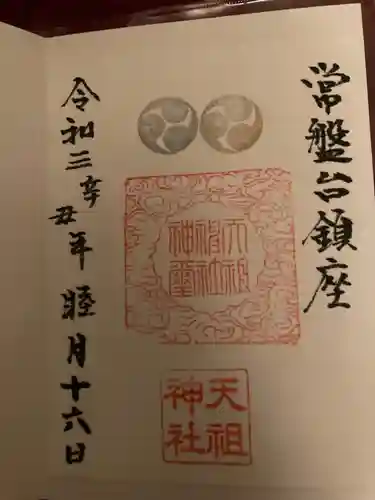 常盤台鎮座
天祖神社神璽
天祖神社
令和三辛丑年睦月十六日